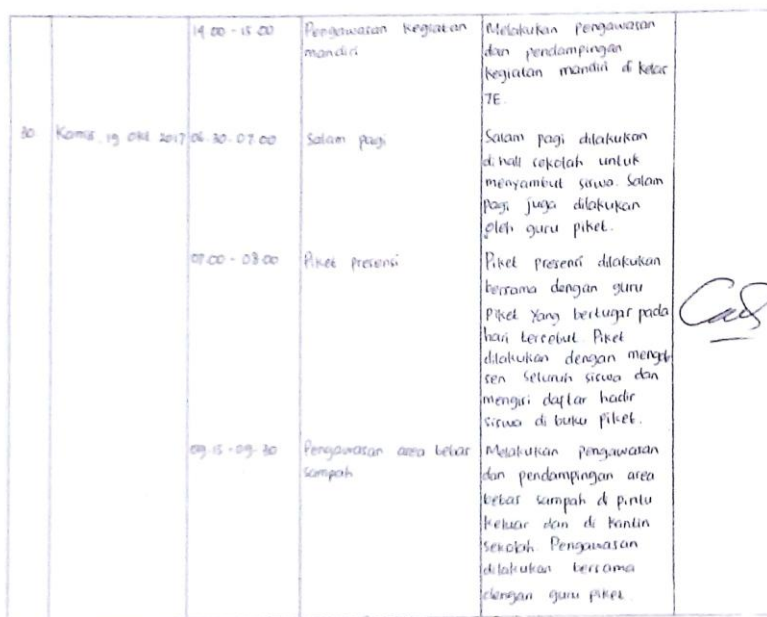 14.00 - 15.00 Pengawasan kegiatan Melakukan pengawasan
mandiri dan pendampingan
kegiatan mandiri di kelas
7E.
30 Kamis, 19 Okt 2017 06.30-07.00 Salam pagi Salam pagi dilakukan
di hall sekolah untuk
menyambut siswa. Salam
pagi juga dilakukan
oleh guru piket.
07.00 - 08.00 Piket presensi Piket presensi dilakukan
bersama dengan guru
piket yang bertugas pada
hari tersebut. Piket
dilakukan dengan mengab
sen seluruh siswa dan
mengisi daftar hadir
siswa di buku piket.
09.15 - 09.30 Pengawasan area bebas Melakukan pengawasan
sampah dan pendampingan area
bebas sampah di pintu
keluar dan di kantin
sekolah. Pengawasan
dilakukan bersama
dengan guru piket